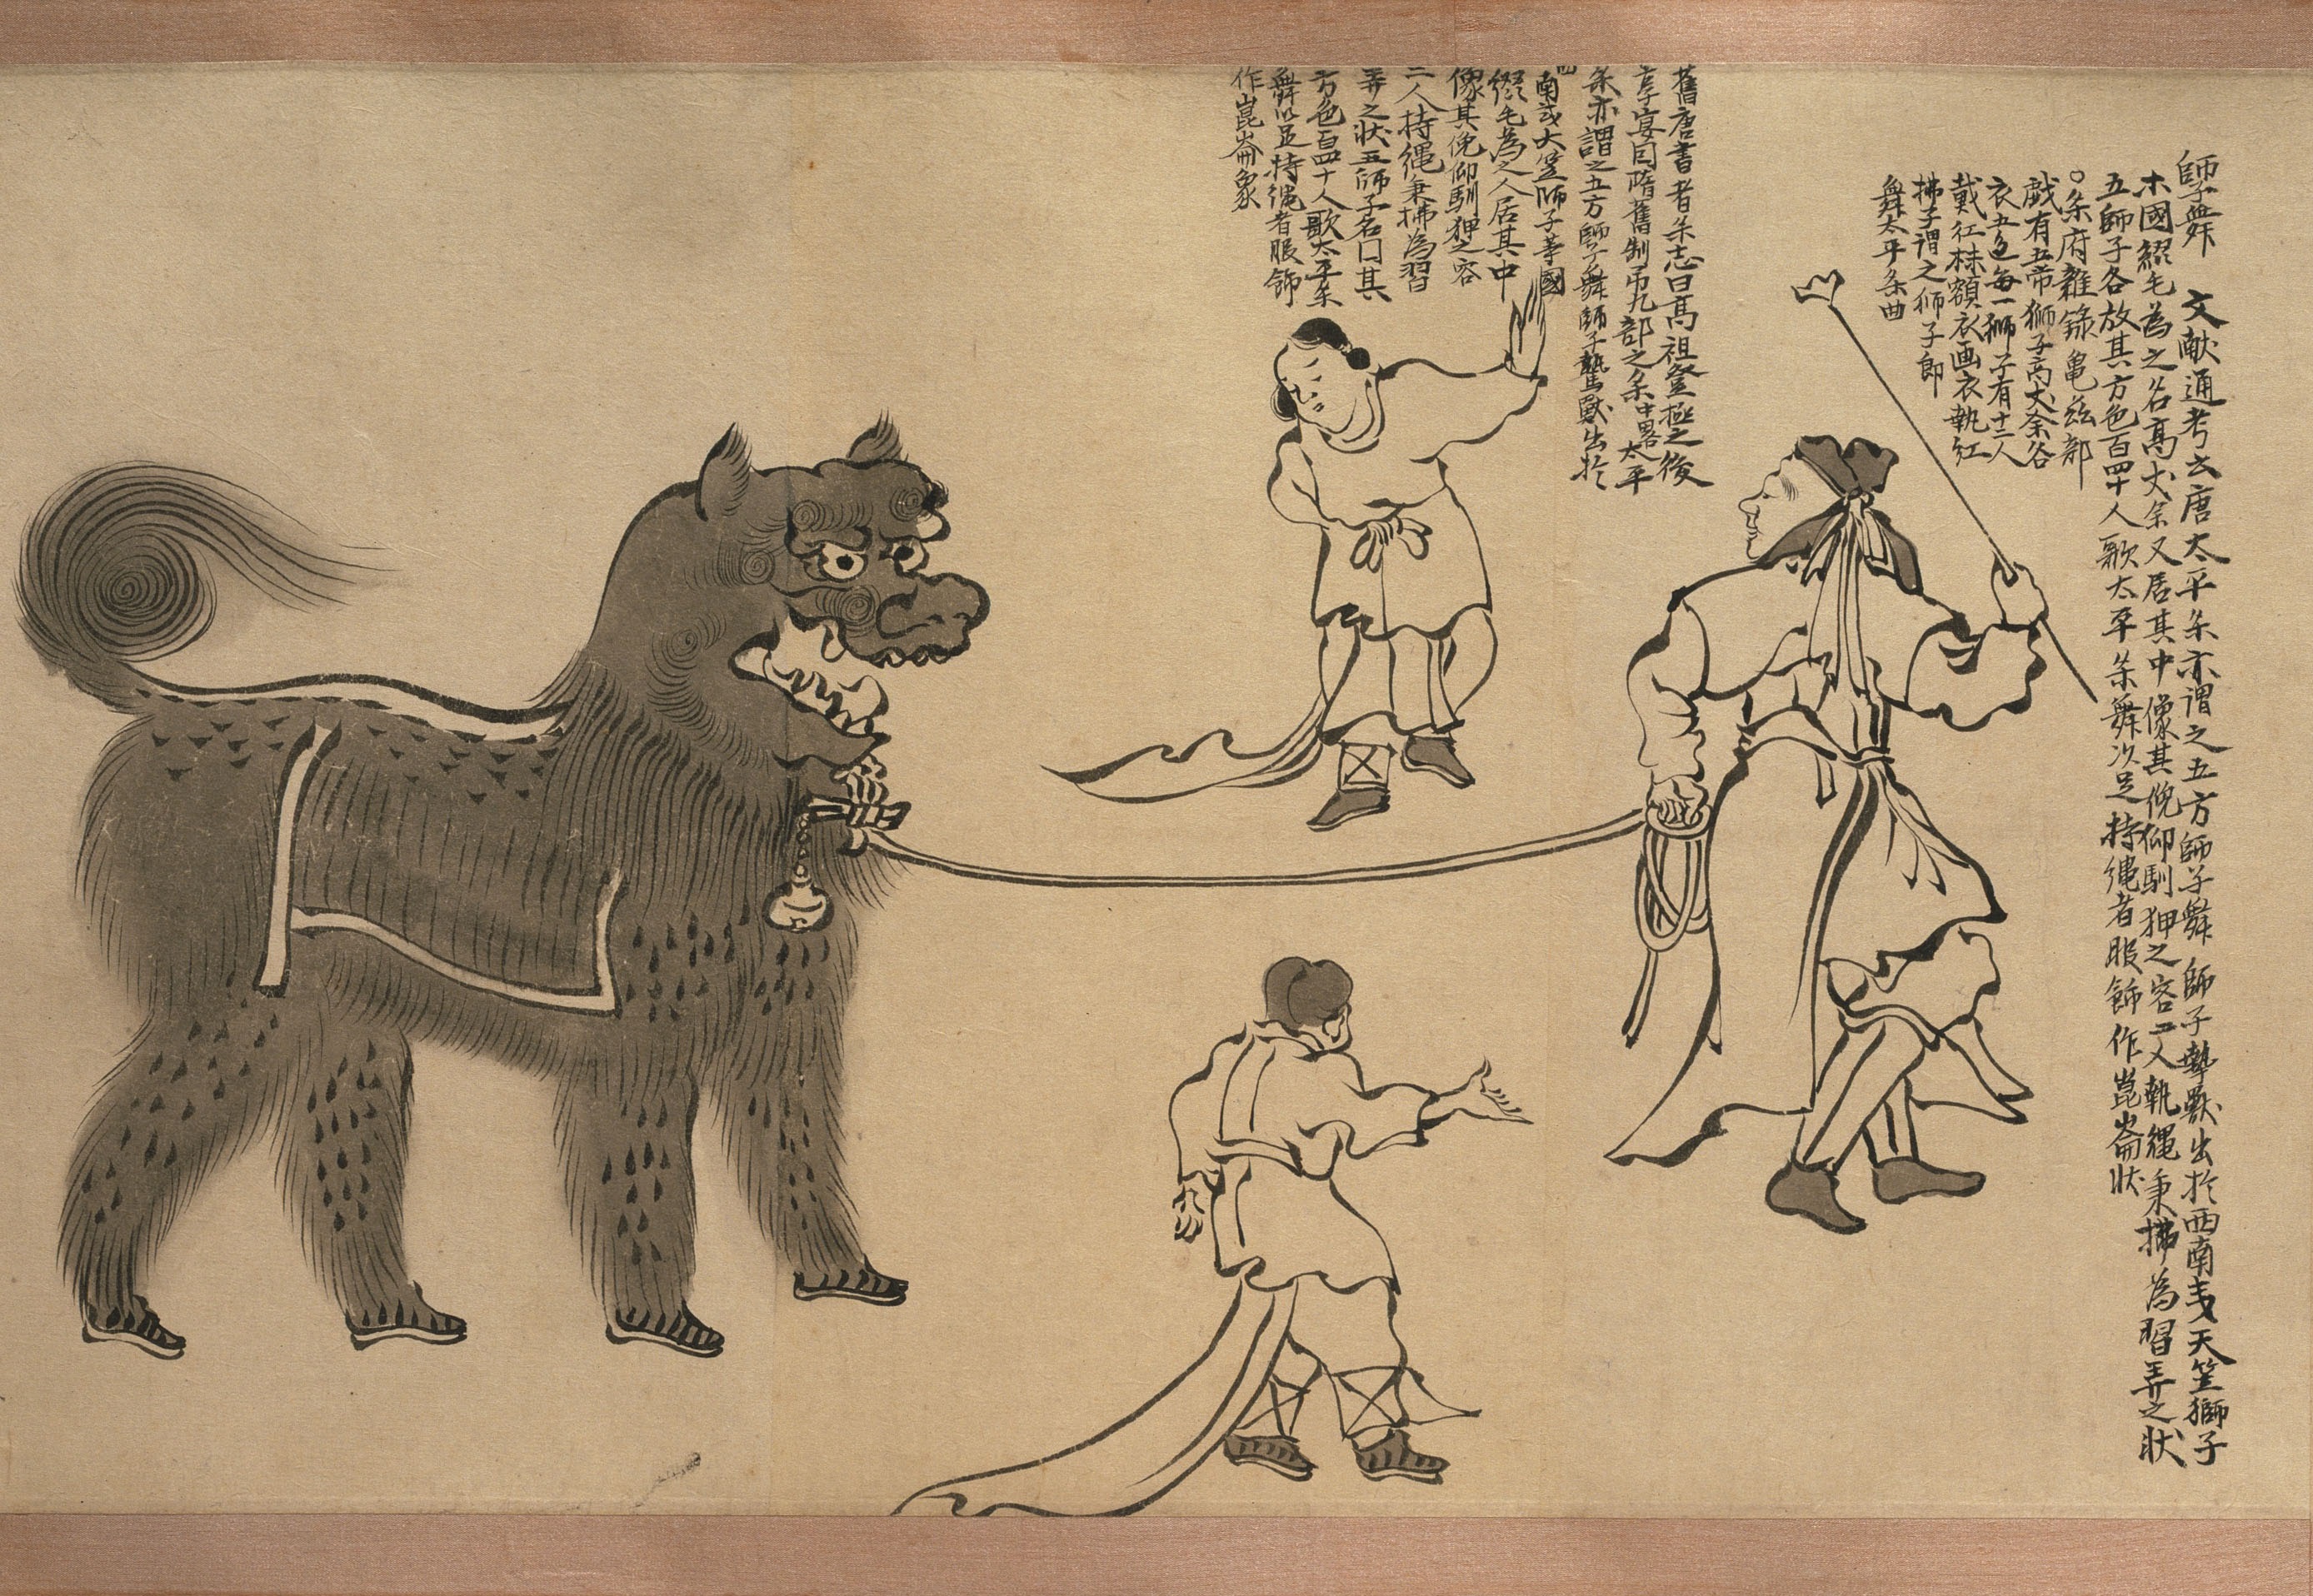 師子舞 文献通考云唐太平楽亦謂之五方師子舞 師子摯獸出於西南夷天笠獅子
ホ國綴毛為之各高丈余又居其中像其俛仰馴狎之容二人執縄秉拂為習弄之状
五師子各放其方色百四十人歌太平楽舞次足持縄者服飾作崑崙状
○楽府雜錄亀兹部
戯有五帝獅子高丈余各
衣五色每一獅子有十二人
戴紅袜額衣画衣執紅
拂子謂之獅子郎
舞太平楽曲
舊唐書音楽志曰高祖登極之後
享宴因隋舊制用九部之楽中畧太平
楽亦謂之五方師子舞師子鷙獸出於
西南夷天笠師子等國
綴毛為之人居其中
像其俛仰馴狎之容
二人持縄秉拂為習
弄之状五師子各曰其
方色百四十人歌太平楽
舞以足持縄者服飾
作崑崙象